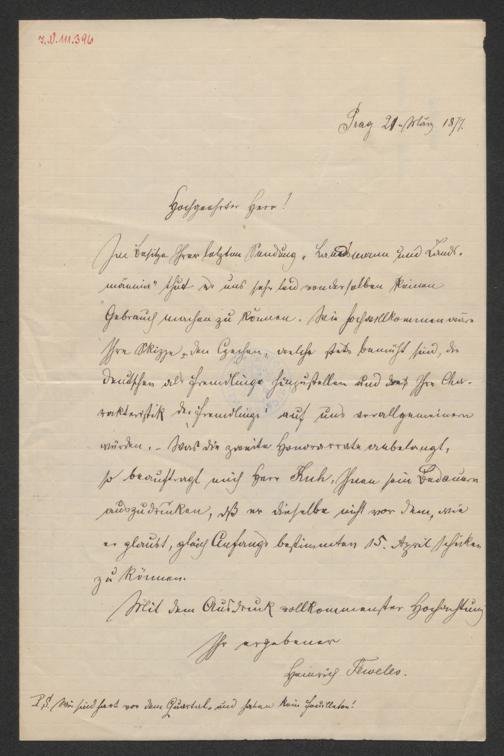 J.N. 111.396
Prag 21. März 1877.
Hochgeehrter Herr!
Im Besitze Ihrer letzten Sendung „Landsmann und Lands-
männin" thut es uns sehr leid von derselben keinen
Gebrauch machen zu können. Wie hochwillkommen wäre
Ihre Skizze den Czechen, welche stets bemüht sind, die
Deutschen als Fremdlinge hinzustellen und Ihre Cha-
rakteristik der „Fremdlinge" auf uns verallgemeinern
würden. – Was die zweite Honorarrate anbelangt,
so beauftragt mich Herr Kuh, Ihnen sein Bedauern
auszudrücken, dß er dieselbe nicht vor dem, wie
er glaubt, gleich Anfangs bestimmten 15. April schicken
zu können.
Mit dem Ausdruck vollkommenster Hochachtung
Ihr ergebener
Heinrich Teweles.
P.S. Wir sind hart vor dem Quartal und haben kein Feuilleton!